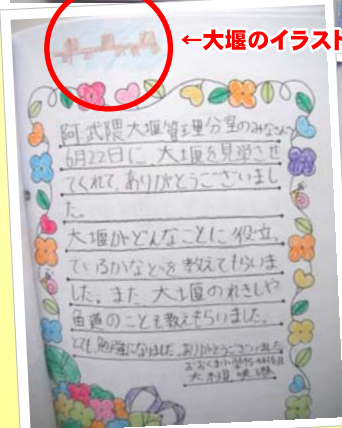 ←大堰のイラスト
阿武隈大堰管理分室のみなさんへ
6月22日に、大堰を見学させ
てくれて、ありがとうございまし
た。
大堰がどんなことに役立っ
ているかなどを教えてもらいま
した。また大堰のれきしや
魚道のことも教えてもらいました。
とても勉強になりました。ありがとうございました。